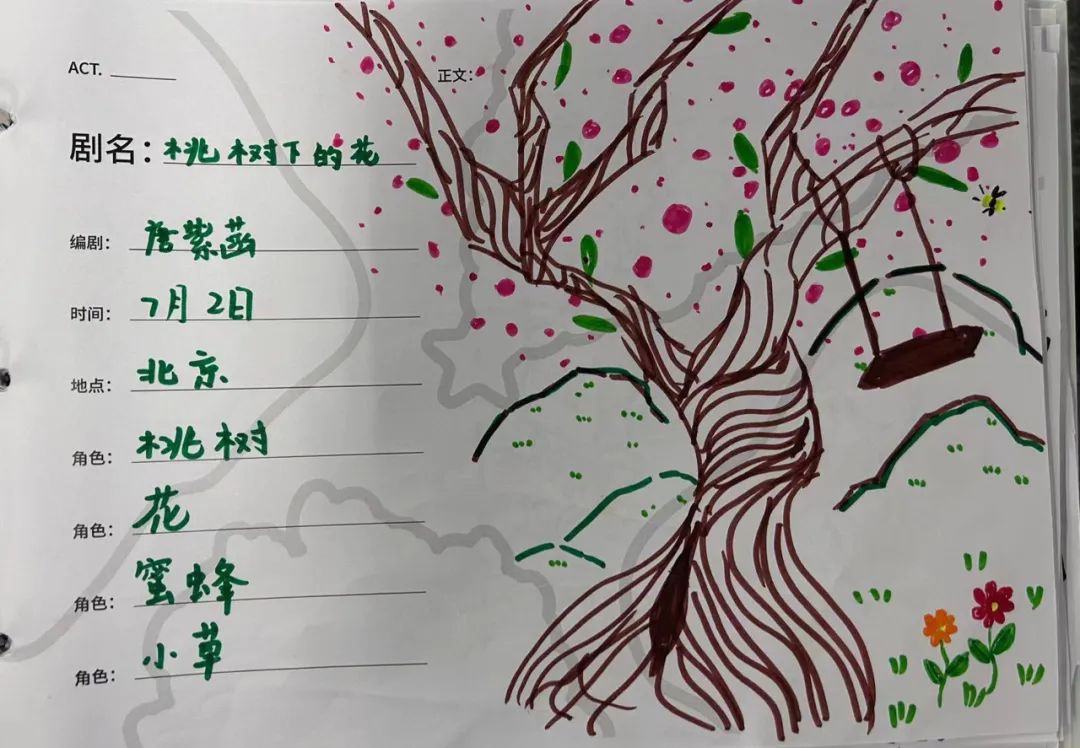 ACT.
正文：
剧名：桃树下的花
编剧：唐紫菡
时间：7月2日
地点：北京
角色：桃树
角色：花
角色：蜜蜂
角色：小草